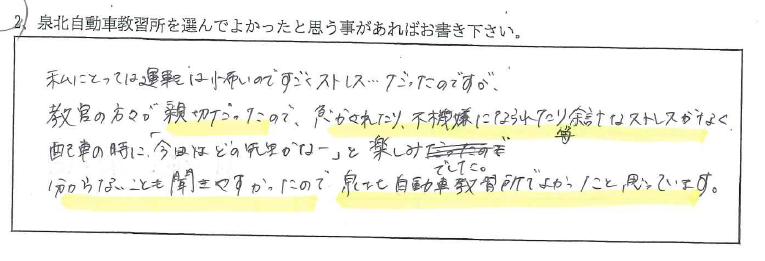 2. 泉北自動車教習所を選んでよかったと思う事があればお書き下さい。
私にとっては運転は怖いのですごくストレス…だったのですが、
教官の方々が親切だったので、急かされたり、不機嫌になられたり等余計なストレスがなく
配車の時に、「今日はどの先生かなー」と楽しみでした。
分からないことも聞きやすかったので泉北自動車教習所でよかったと思っています。